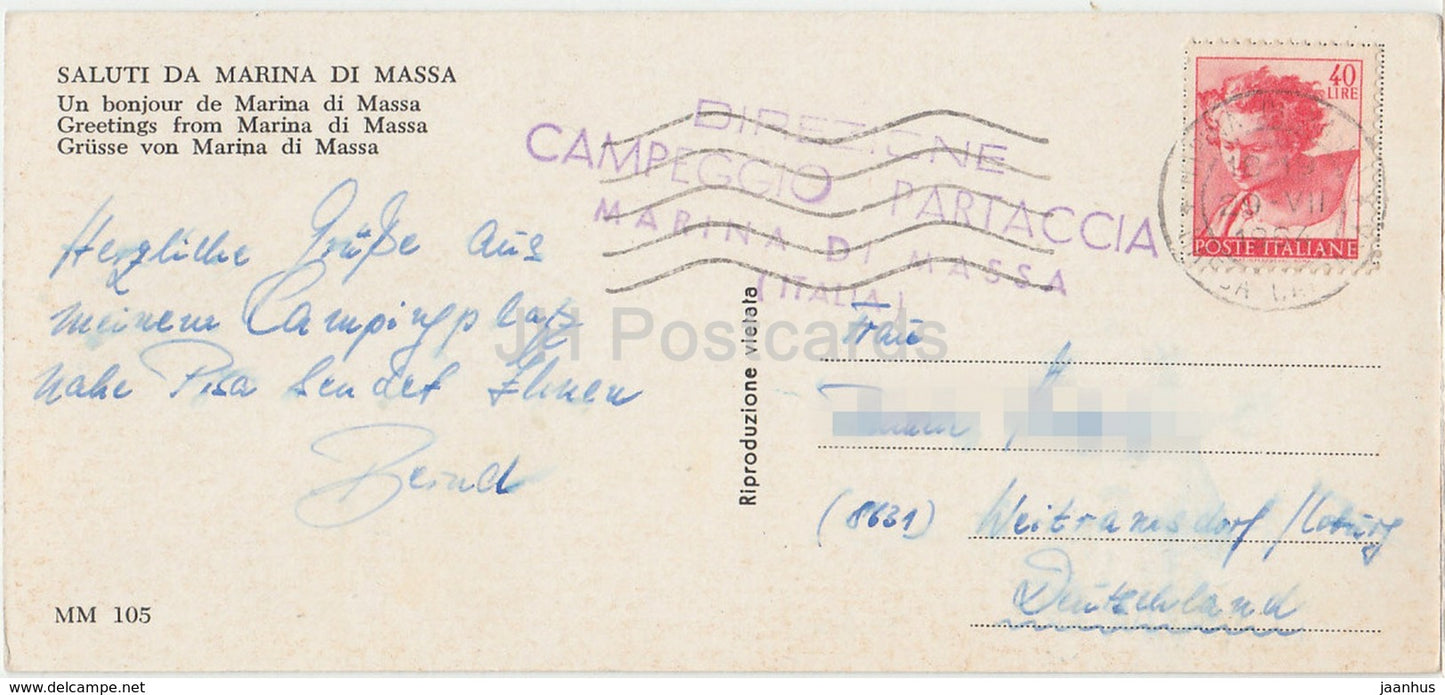 SALUTI DA MARINA DI MASSA
Un bonjour de Marina di Massa
Greetings from Marina di Massa
Grüsse von Marina di Massa
Herzliche Grüße aus
meinem Campingplatz
nahe Pisa sendet Ihnen
Bernd
MM 105
DIREZIONE
CAMPEGGIO PARTACCIA
MARINA DI MASSA
(ITALIA)
40
LIRE
POSTE ITALIANE
Riproduzione vietata
JH Postcards
Frau
(8631) Weitramsdorf/Coburg
Deutschland
www.delcampe.net
jaanhus